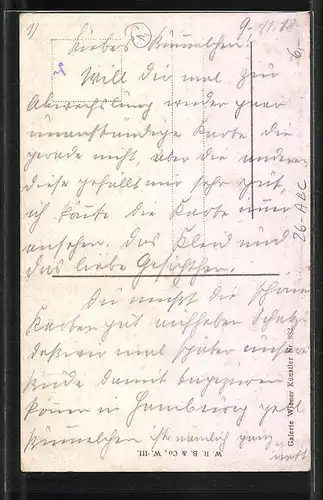 1) 9.11.18
Liebes Kümmelchen!
Will dir mal zur
Abwechslung wieder paar
unanständige Karte die
gerade nicht, aber die andere
diese gefällt mir sehr gut,
ich könnte die Karte immer
ansehen. Das Kleid und
das liebe Gesichtchen.
Du musst die schöne
Karten gut aufheben Schatzi
daß wir mal später unsere
damit
können in Hamburg gell
Kümmelchen ist nämlich ganz
nett
6,-
26-ABC
Galerie Wiener Künstler Nr. 882.
W. R. B. & Co, W.-III.